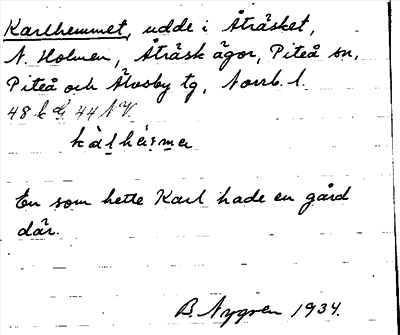 Karlhemmet, udde i Åträsket,
N. Holmen, Åträsk ägor, Piteå sn,
Piteå och Älvsby tg, Norrb. l.
48 k G 44 NV.
En som hette Karl hade en gård
där.
B. Nygren 1934.